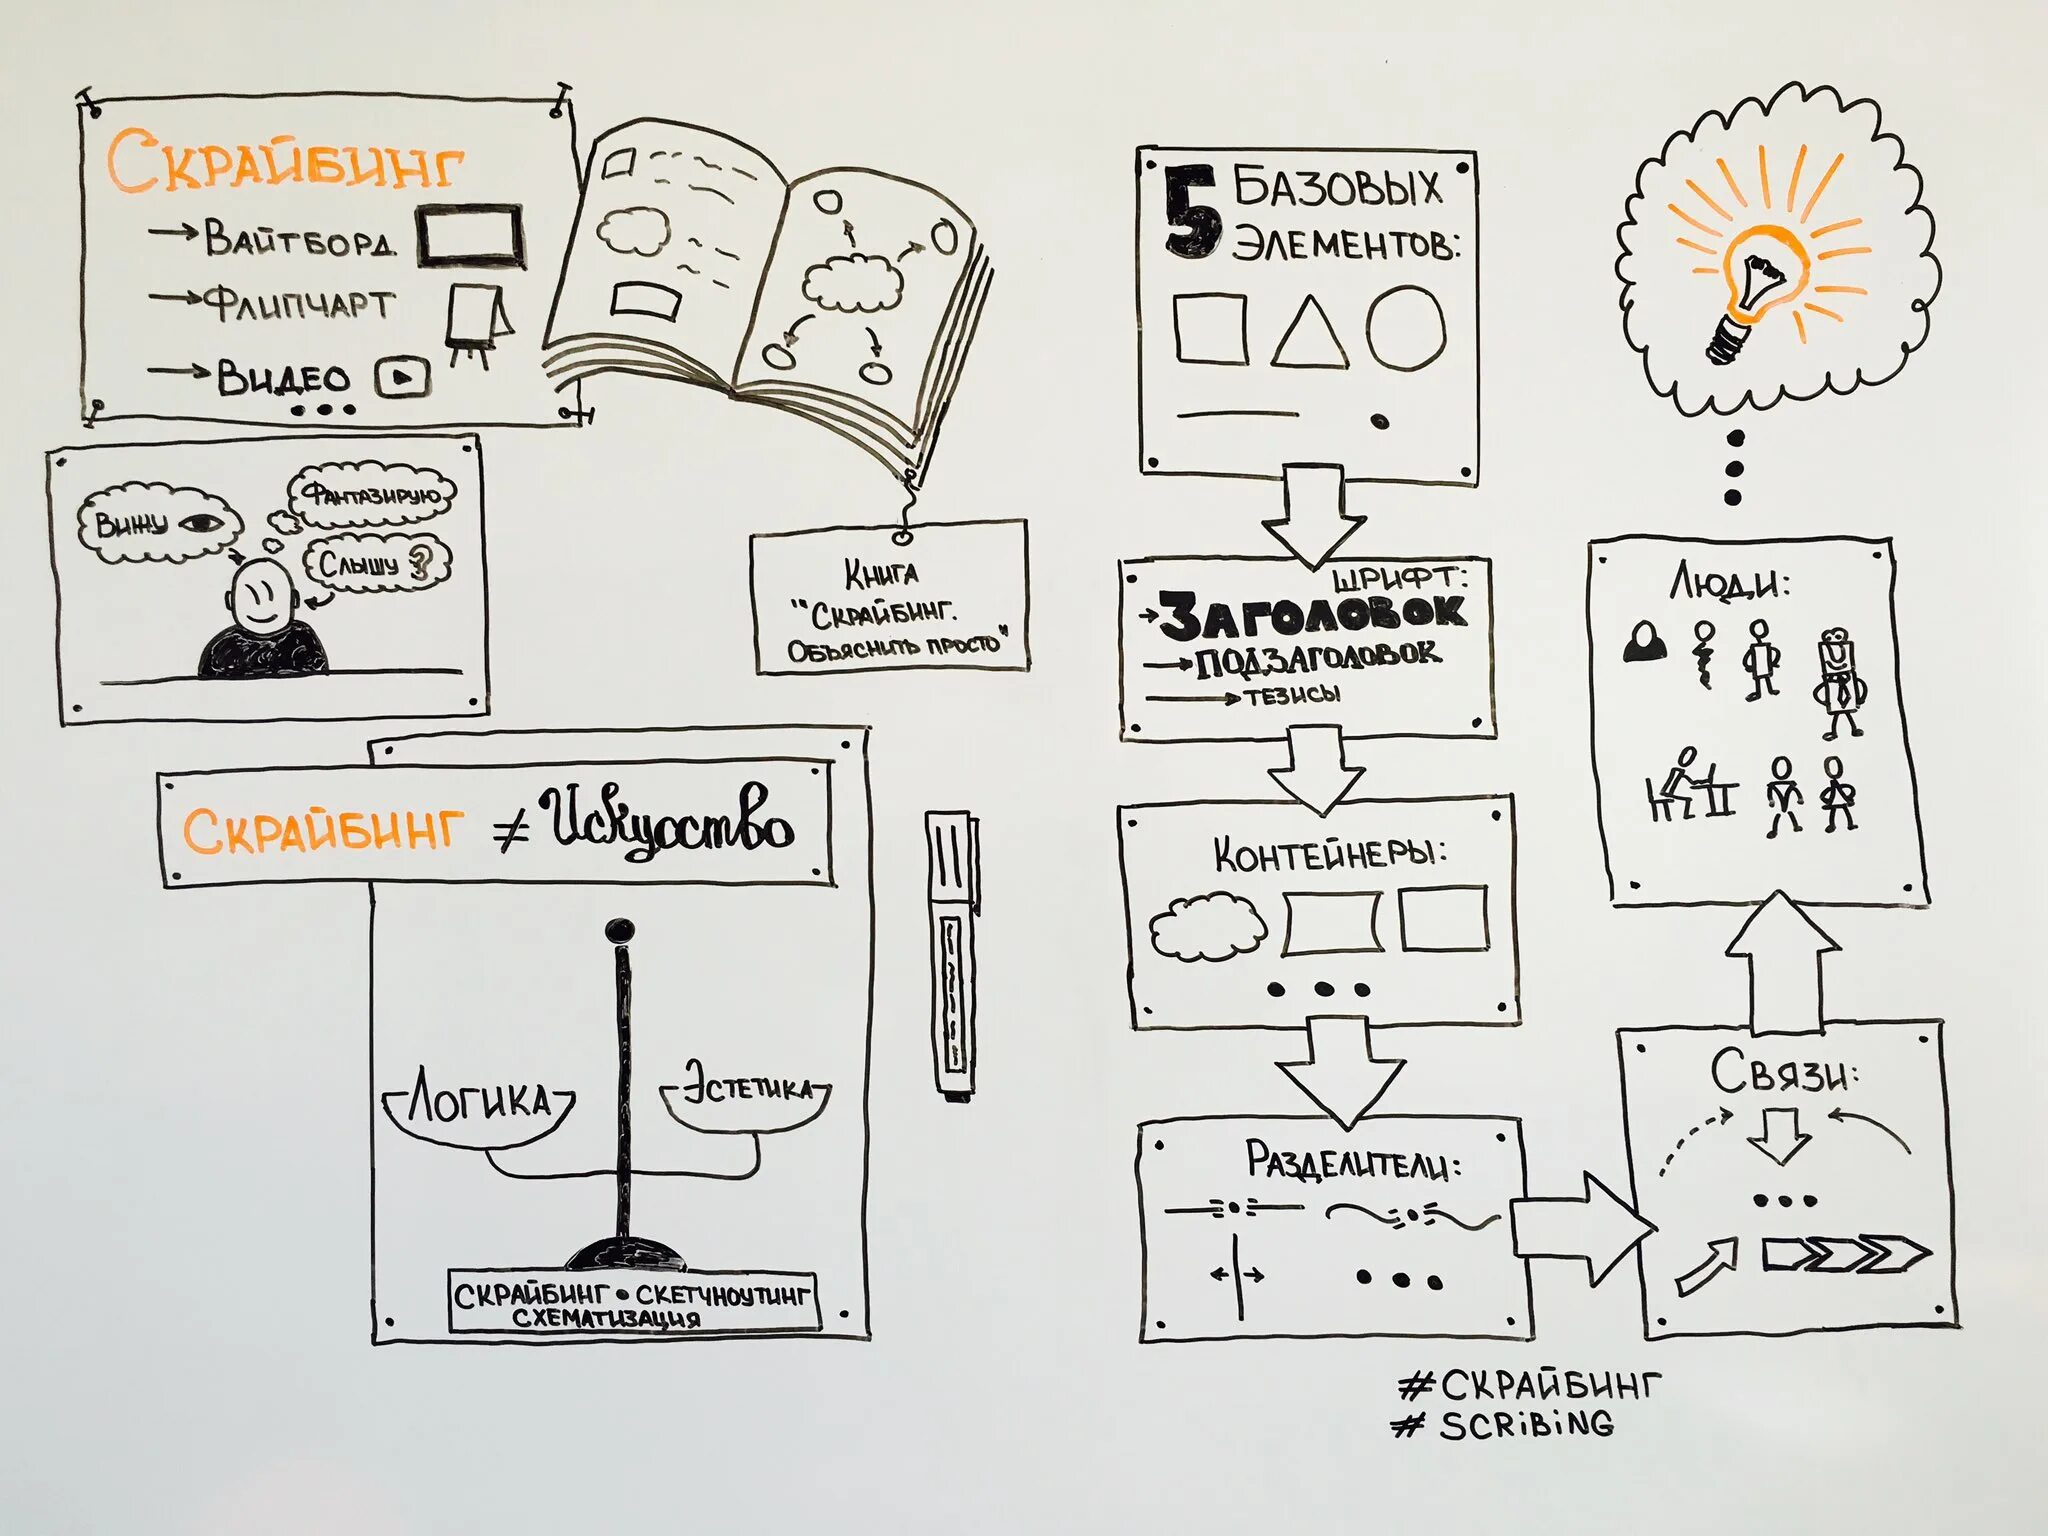 Скрайбинг
Вайтборд
Флипчарт
Видео
Вижу
Фантазирую
Слышу
Книга
"Скрайбинг.
Объяснить просто"
Скрайбинг ≠ Искусство
Логика
Эстетика
Скрайбинг • Скетчноутинг
Схематизация
5 Базовых
Элементов:
Шрифт:
Заголовок
Подзаголовок
Тезисы
Контейнеры:
Разделители:
Связи:
Люди:
#Скрайбинг
# SCRiBiNG